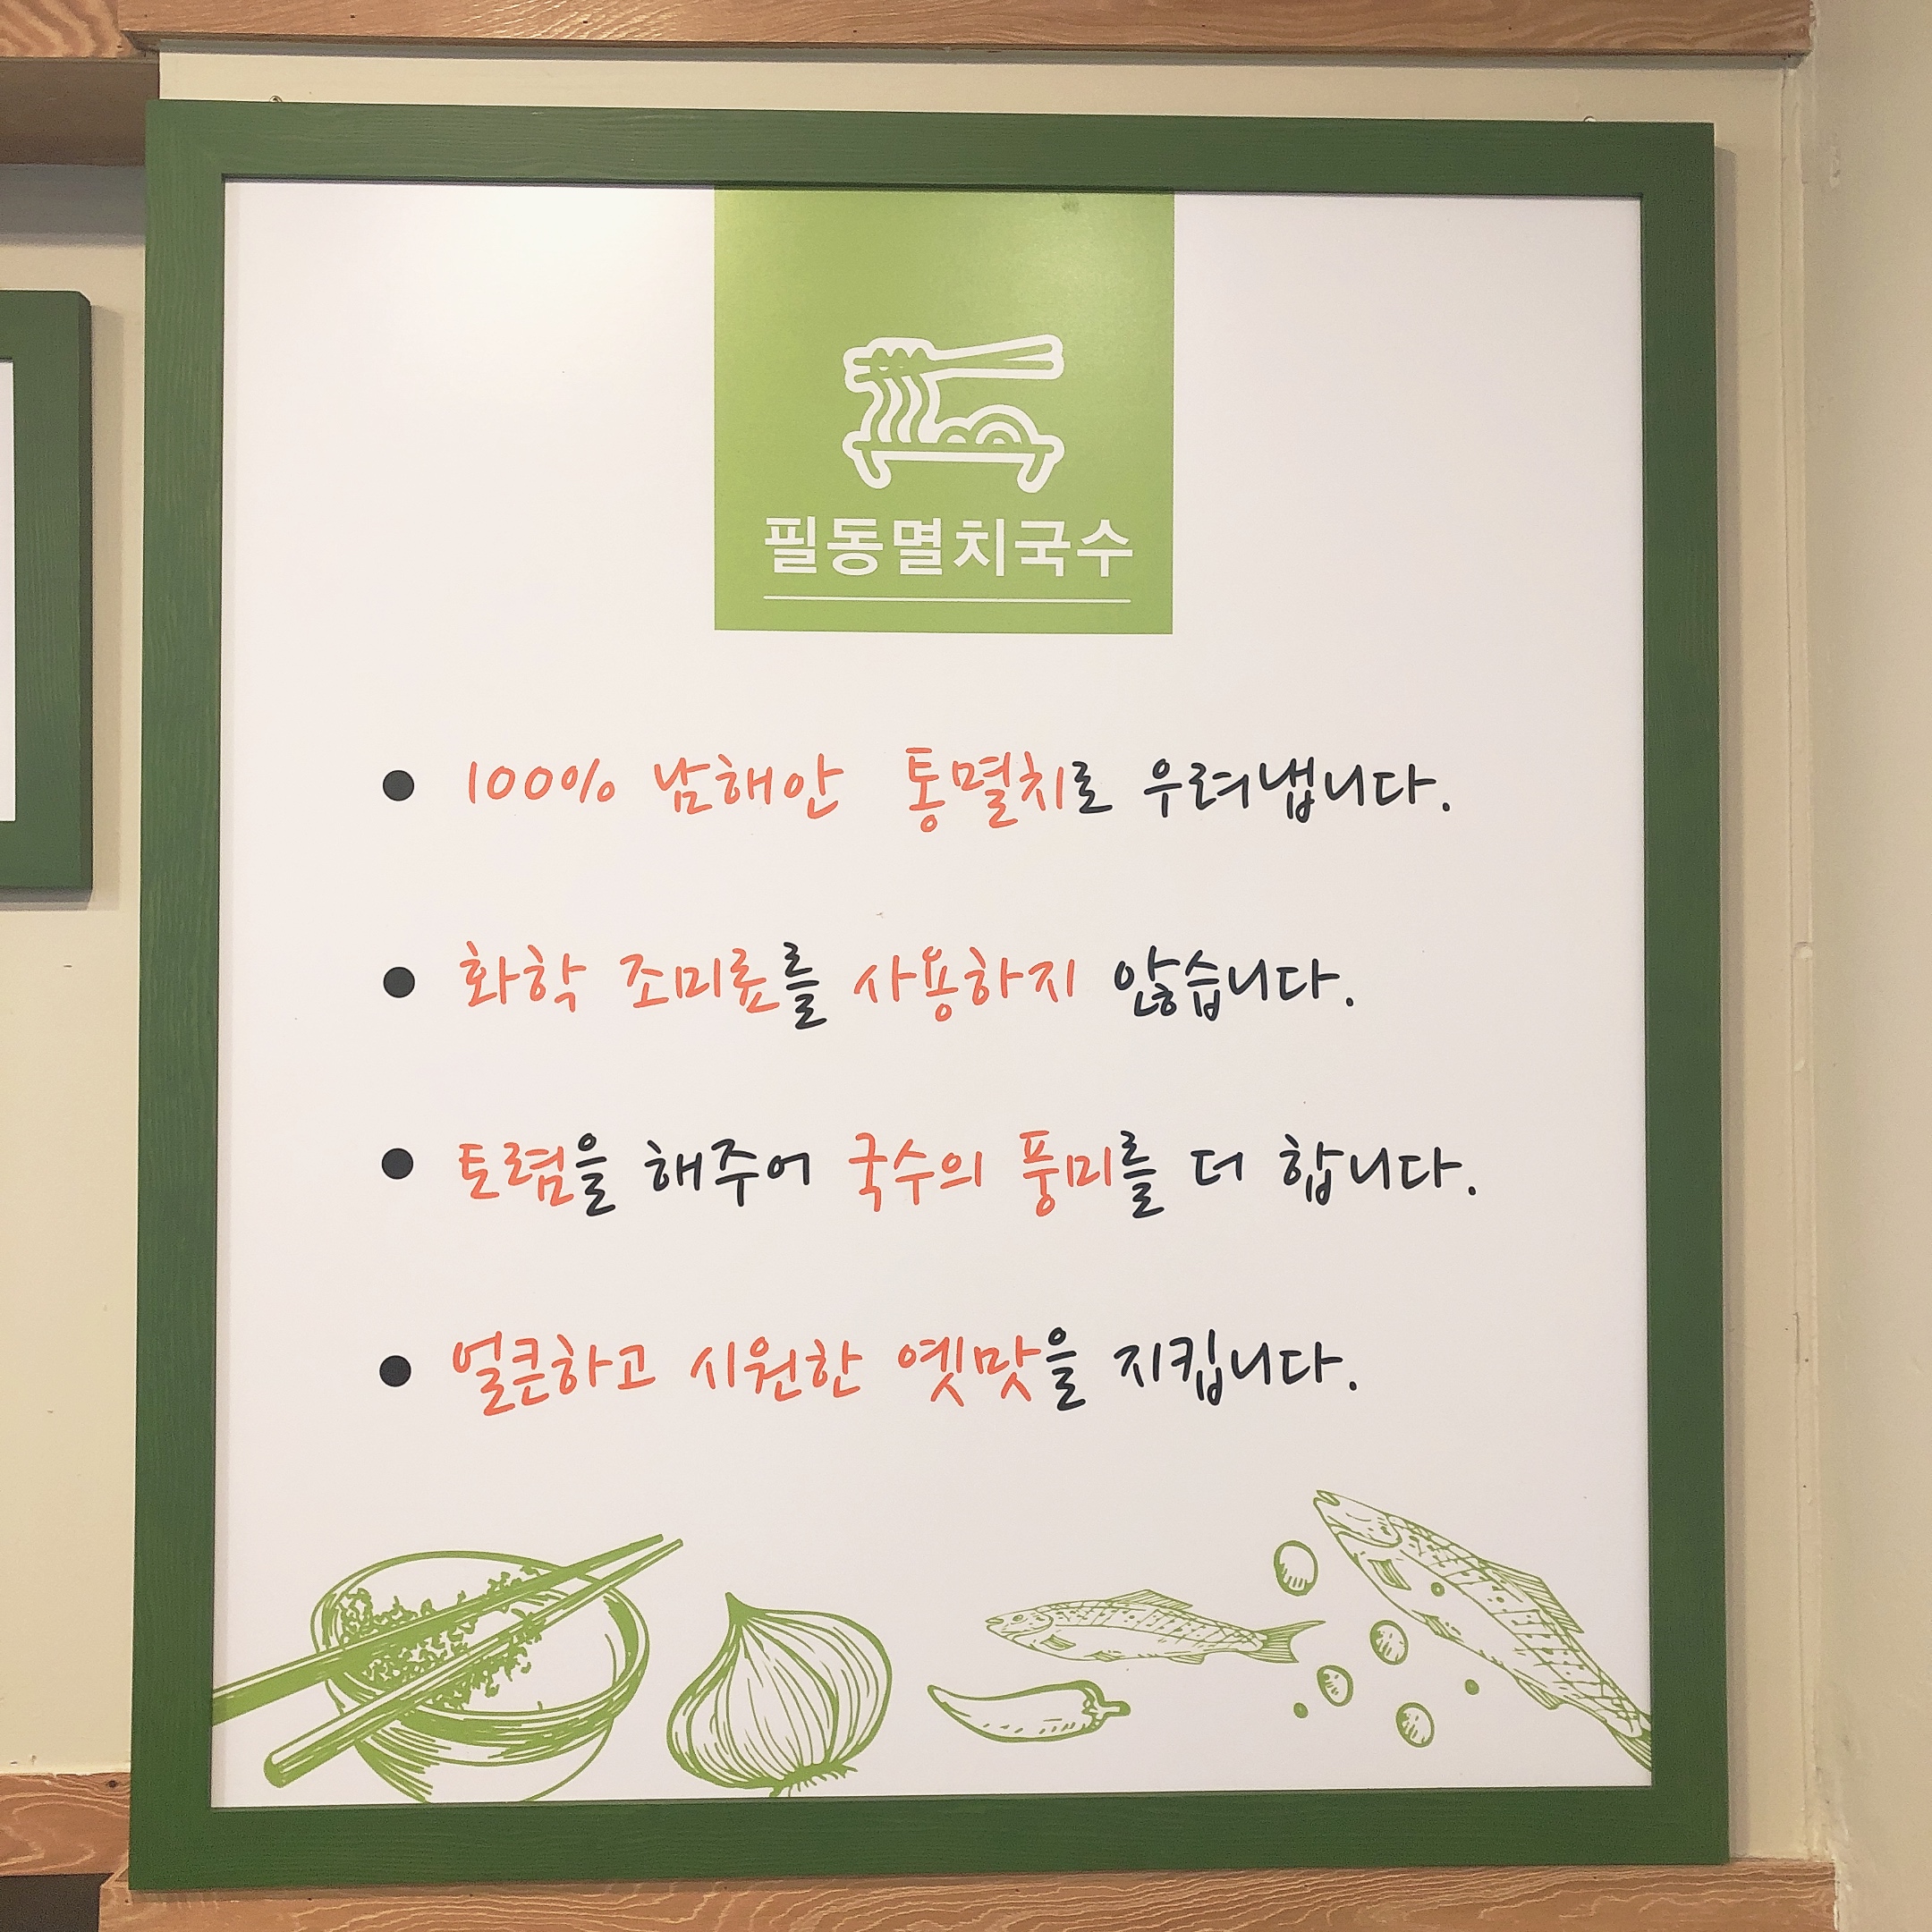 필동멸치국수
● 100% 남해안 통멸치로 우려냅니다.
● 화학 조미료를 사용하지 않습니다.
● 토렴을 해주어 국수의 풍미를 더 합니다.
● 얼큰하고 시원한 옛맛을 지킵니다.